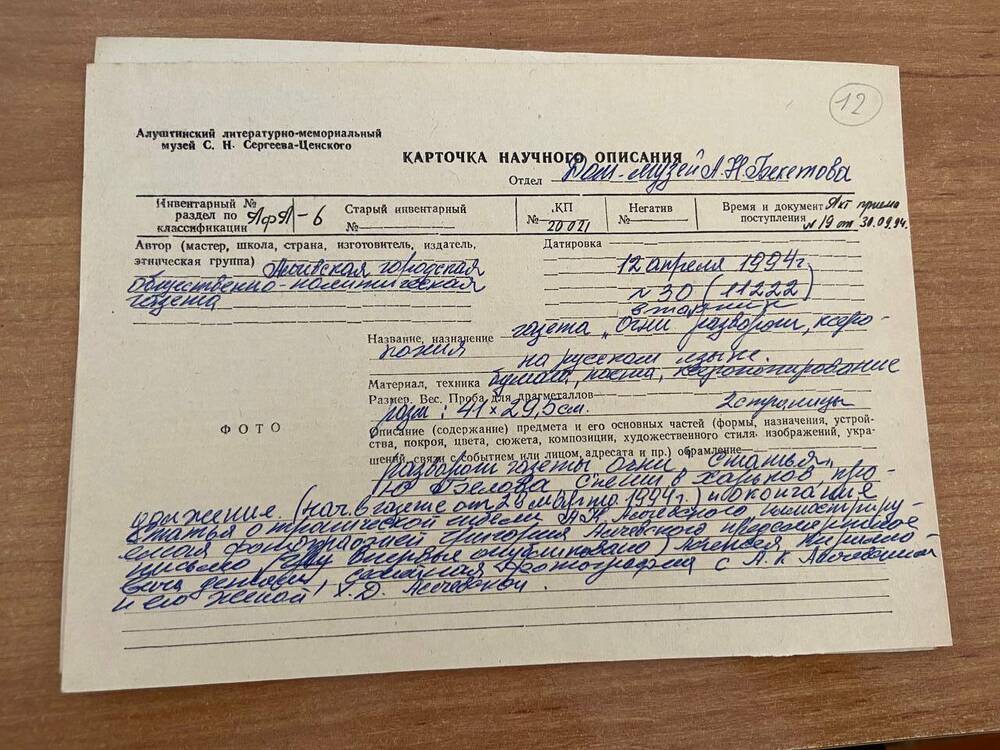 12
Алуштинский литературно-мемориальный
музей С. Н. Сергеева-Ценского
КАРТОЧКА НАУЧНОГО ОПИСАНИЯ
Отдел Дом-музей А.Н.Бекетова
Инвентарный №
раздел по
классификации -6
Старый инвентарный
№
КП
№ 20021
Негатив
№
Время и документ Акт приема
поступления №19 от 30.09.94.
Автор (мастер, школа, страна, изготовитель, издатель,
этническая группа) Алчевская городская
общественно-политическая
газета
Датировка
12 апреля 1994г.
№30 (11222)
вторник
Название, назначение газета „Огни разворот, ксеро-
копия
на русском языке.
Материал, техника бумага, краска, ксерокопирование
Размер. Вес. Проба для драгметаллов
разм: 41×29,5см. 2 страницы
ФОТО
Описание (содержание) предмета и его основных частей (формы, назначения, устрой-
ства, покроя, цвета, сюжета, композиции, художественного стиля изображений, укра-
шений, связи с событием или лицом, адресата и пр.) обрамление
разворот газеты огни, статья
Ю Белова Спеши в Харьков, про-
должение. (нач. в газете от 1994г.) и окончание
статья о трагической гибели А.К. Алчевского, иллюстриру-
емая фотографией Григория Алчевского предсмертное
письмо впервые опубликовано) Алексея Кирилло-
вича фотография с А.К Алчевским
и его женой, Х.Д. Алчевской.